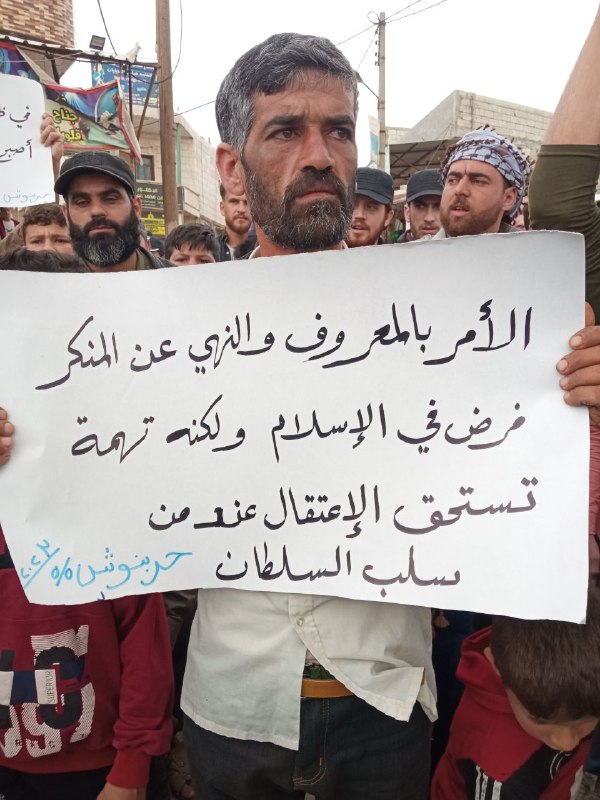 الأمر بالمعروف والنهي عن المنكر
فرض في الإسلام ولكنه تهمة
تستحق الإعتقال عند من
سلب السلطان
حربنوش ٥/٥/٢٠٢٣
في
أصبر
جناح
SUPERIOR